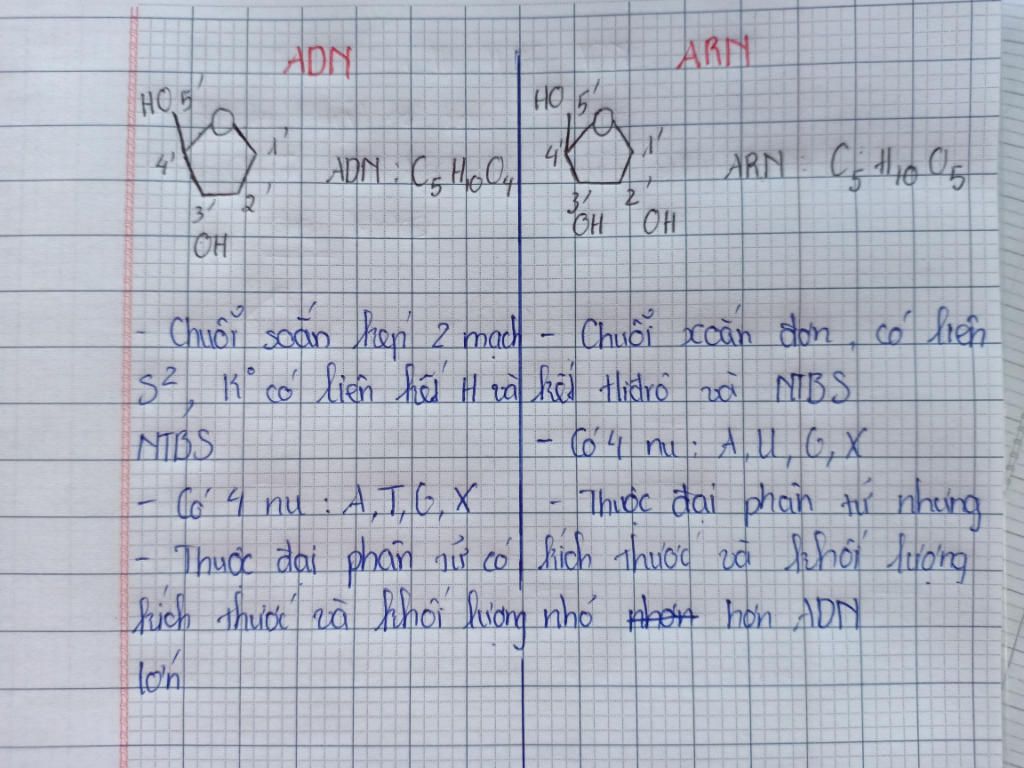 ADN
HO 5'
4'
1'
3'
2'
OH
ADN : C5H10O4
- Chuỗi soắn kép 2 mạch
S², K° có liên kết H và
NTBS
- Có 4 nu : A, T, G, X
- Thuộc đại phân tử có
kích thước và khối lượng
lớn
ARN
HO 5'
O
4'
1'
3'
2'
OH
OH
ARN : C5H10O5
- Chuỗi xoắn đơn, có liên
kết Hiđrô và NTBS
- Có 4 nu : A, U, G, X
- Thuộc đại phân tử nhưng
kích thước và khối lượng
nhỏ hơn ADN